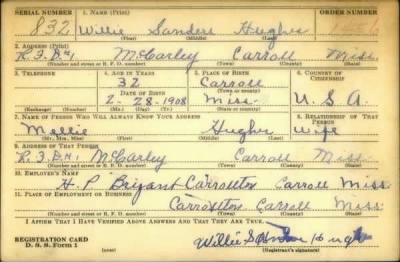 SERIAL NUMBER 1. NAME (Print) ORDER NUMBER
832 Willie Sanders Hughes
(First) (Middle) (Last)
2. ADDRESS (Print)
R.F.D.#1 McCarley Carroll Miss.
(Number and street or R. F. D. number) (Town) (County) (State)
3. TELEPHONE 4. AGE IN YEARS 5. PLACE OF BIRTH 6. COUNTRY OF CITIZENSHIP
32 Carroll
DATE OF BIRTH (Town or county)
2-28-1908 Miss. U.S.A.
(Exchange) (Number) (Mo.) (Day) (Yr.) (State or country)
7. NAME OF PERSON WHO WILL ALWAYS KNOW YOUR ADDRESS 8. RELATIONSHIP OF THAT PERSON
Mellie Hughes Wife
(Mr., Mrs., Miss) (First) (Middle) (Last)
9. ADDRESS OF THAT PERSON
R.F.D.#1 McCarley Carroll Miss.
(Number and street or R. F. D. number) (Town) (County) (State)
10. EMPLOYER'S NAME
H. P. Bryant Carrollton Carroll Miss
11. PLACE OF EMPLOYMENT OR BUSINESS
Carrollton Carroll Miss.
(Number and street or R. F. D. number) (Town) (County) (State)
I AFFIRM THAT I HAVE VERIFIED ABOVE ANSWERS AND THAT THEY ARE TRUE.
REGISTRATION CARD
D. S. S. Form 1 (over) Willie Sanders Hughes
(Registrant's signature)